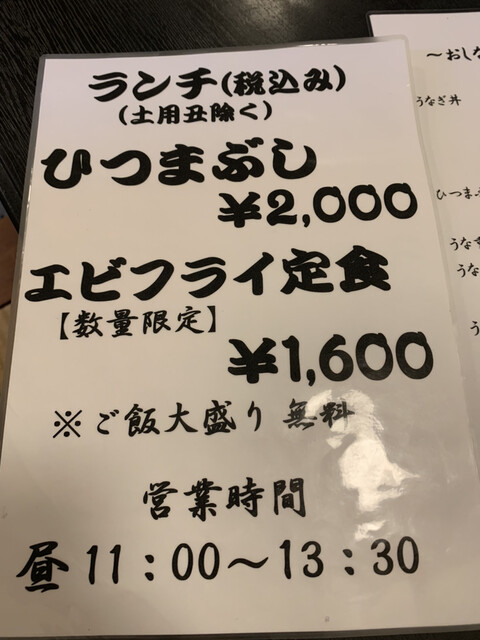 ランチ(税込み)
(土用丑除く)
ひつまぶし
¥2,000
エビフライ定食
【数量限定】
¥1,600
※ご飯大盛り 無料
営業時間
昼11:00～13:30
～おしな
うなぎ丼
ひつまぶ
うな
うな
う